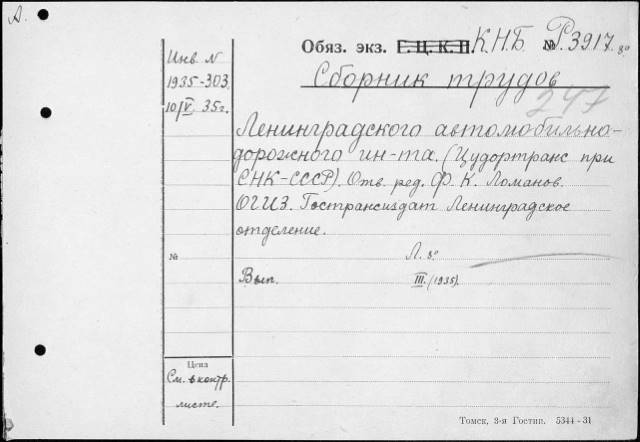 А.
Обяз. экз. Г.Ц.К.П. К.Н.Б. № Р3917. 8º
Инв. N
1935-303
10/V 35г.
Сборник трудов
247
Ленинградского автомобильно-
дорожного ин-та. (Цудортранс при
СНК-СССР). Отв. ред. Ф. К. Ломанов.
ОГИЗ. Гострансиздат Ленинградское
отделение.
№ Л. 8º
Вып. III. (1935).
Цена
См. в контр.
листе.
Томск, 3-я Гостип. 5344-31